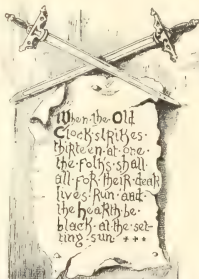 When·the·Old
Clock·strikes·
thirteen·at·one·
the·folks·shall
all·for·their·dear
lives·run·and·
the·hearth·be·
black·at·the·set-
ting·sun· + + +